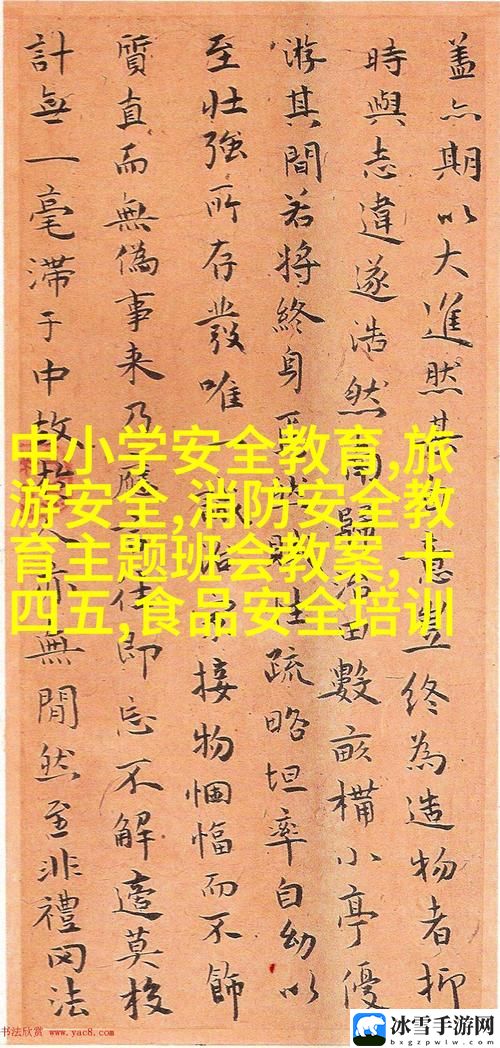 盖亦期以大進然其意豈終為造物者抑
時與志違遂浩然歸田數畝構小亭優
游其間若將終身性疏略坦率自幼以
至壯強所存發唯一接物悃愊而不飾
質直而無偽事来乃應即忘不解莫校
計無一毫滯于中故人亦無閒然至非禮罔法
中小学安全教育,旅
游安全,消防安全教
育主题班会教案,十
四五,食品安全培训
书法欣赏 www.yac8.com
冰雪手游网
bxgzpwlw.com